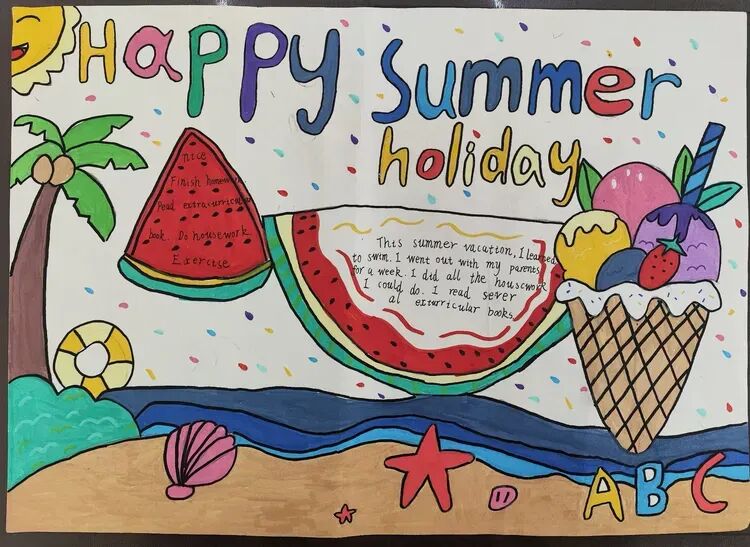 Happy Summer
holiday
nice
Finish homewor
Read extracurricular
book. Do housework
Exercise
This summer vacation, I learned
to swim. I went out with my parents
for a week. I did all the housework
I could do. I read sever
al exturricular books
ABC